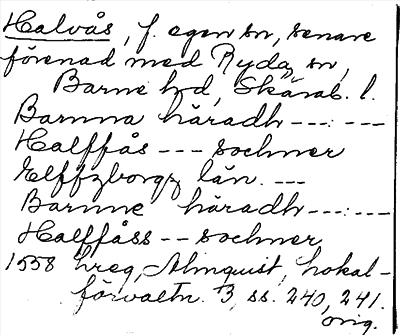 Halvås, f. egen sn, senare
förenad med Ryda sn,
Barne hd, Skarab. l.
Barnna häradh ---:---
Halffås --- sochner
Elffzborgz län. ---
Barnne häradh ---:---
Halffåss -- sochner
1558 Lreg, Almquist, Lokal-
förvaltn. 3, ss. 240, 241.
orig.